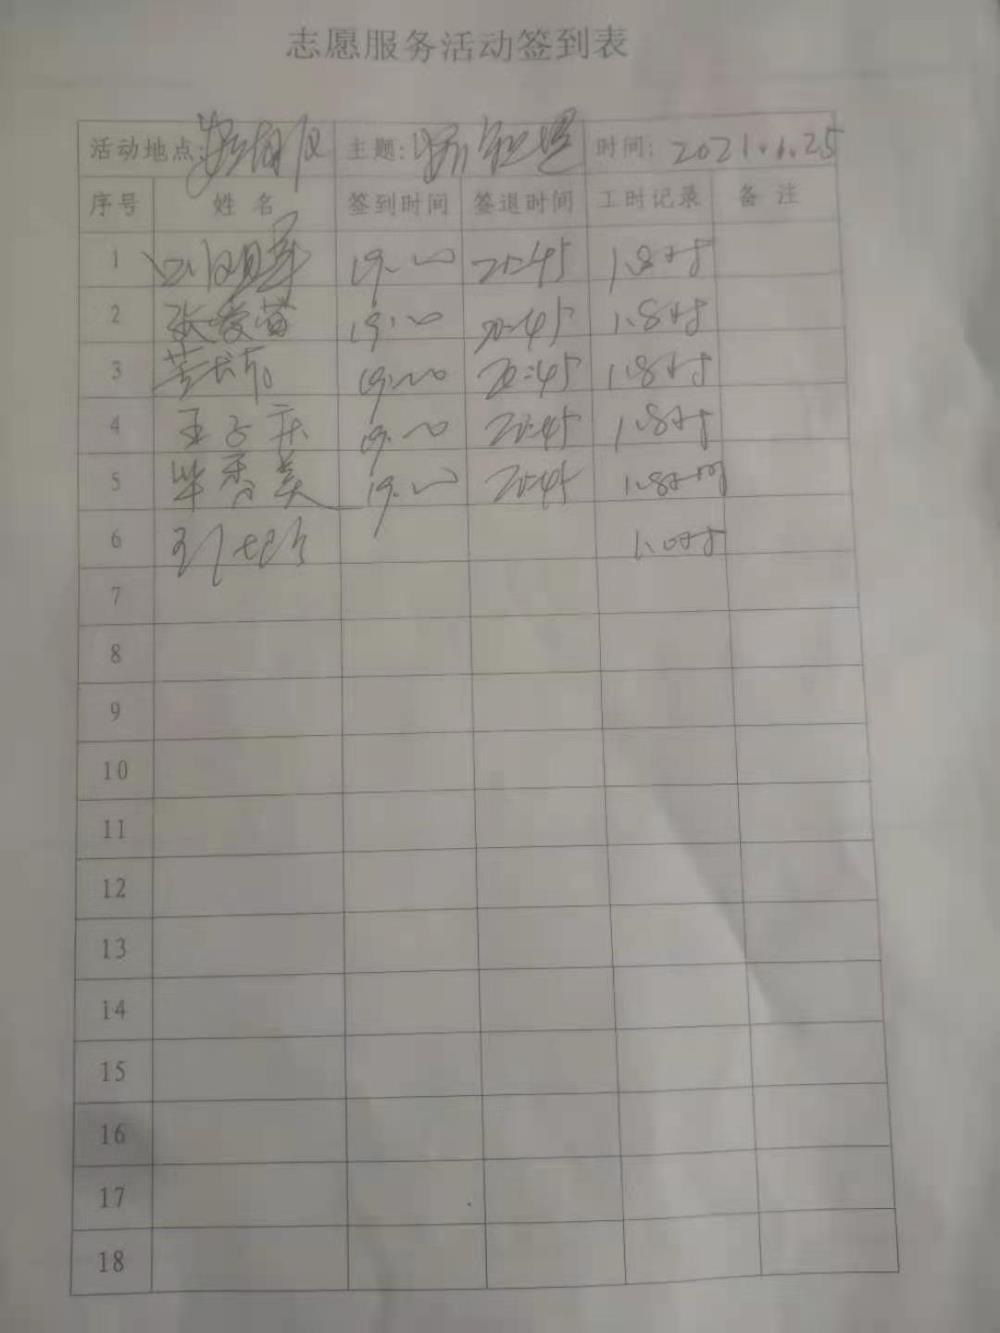 志愿服务活动签到表
活动地点: 主题: 时间: 2021.1.25
序号 姓名 签到时间 签退时间 工时记录 备注
1 19:00 20:45 1.8时
2 张爱苗 19:00 20:45 1.8时
3 19:00 20:45 1.8时
4 王子庆 19:00 20:45 1.8时
5 毕秀美 19:00 20:45 1.8时
6 1.0时
7
8
9
10
11
12
13
14
15
16
17
18